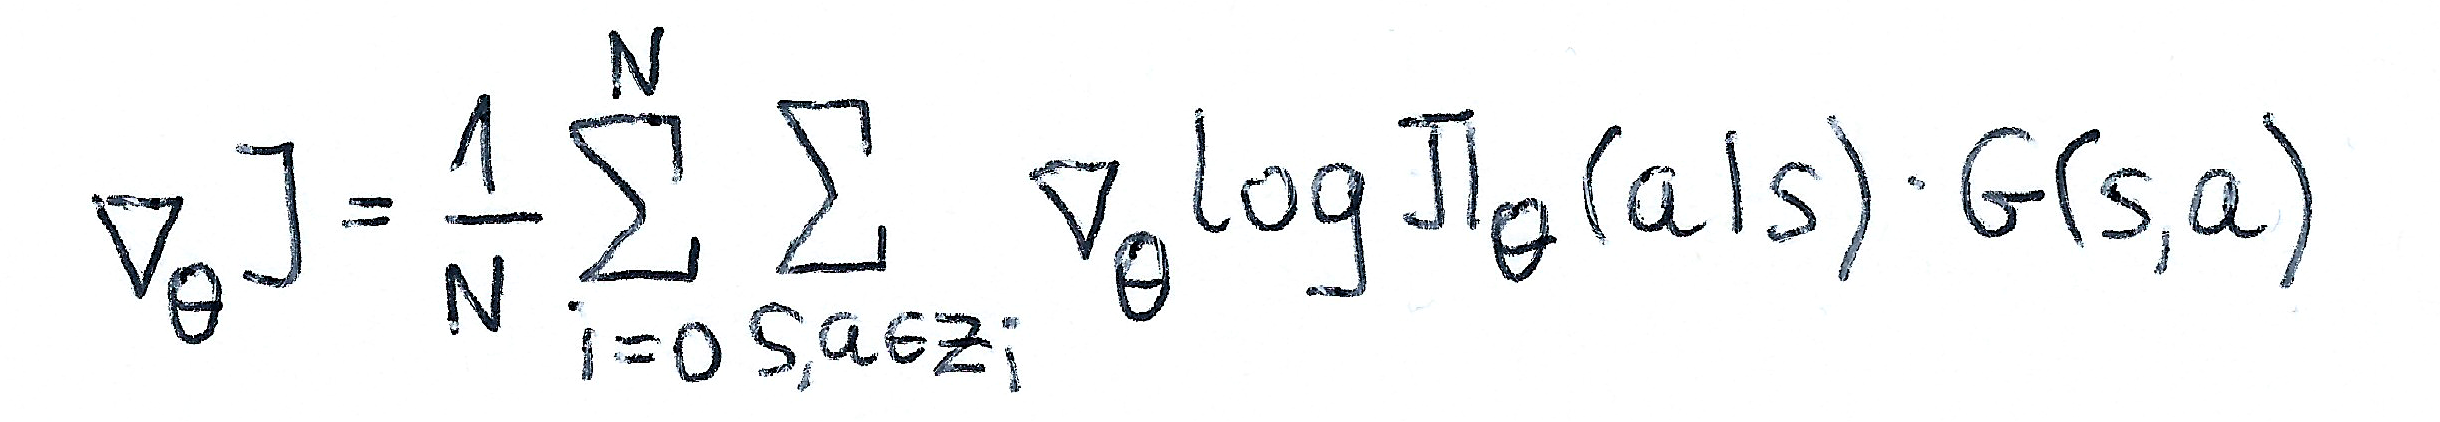 ∇_θ J = \frac{1}{N} \sum_{i=0}^{N} \sum_{s,a∈z_i} ∇_θ log π_θ (a|s) · G(s,a)